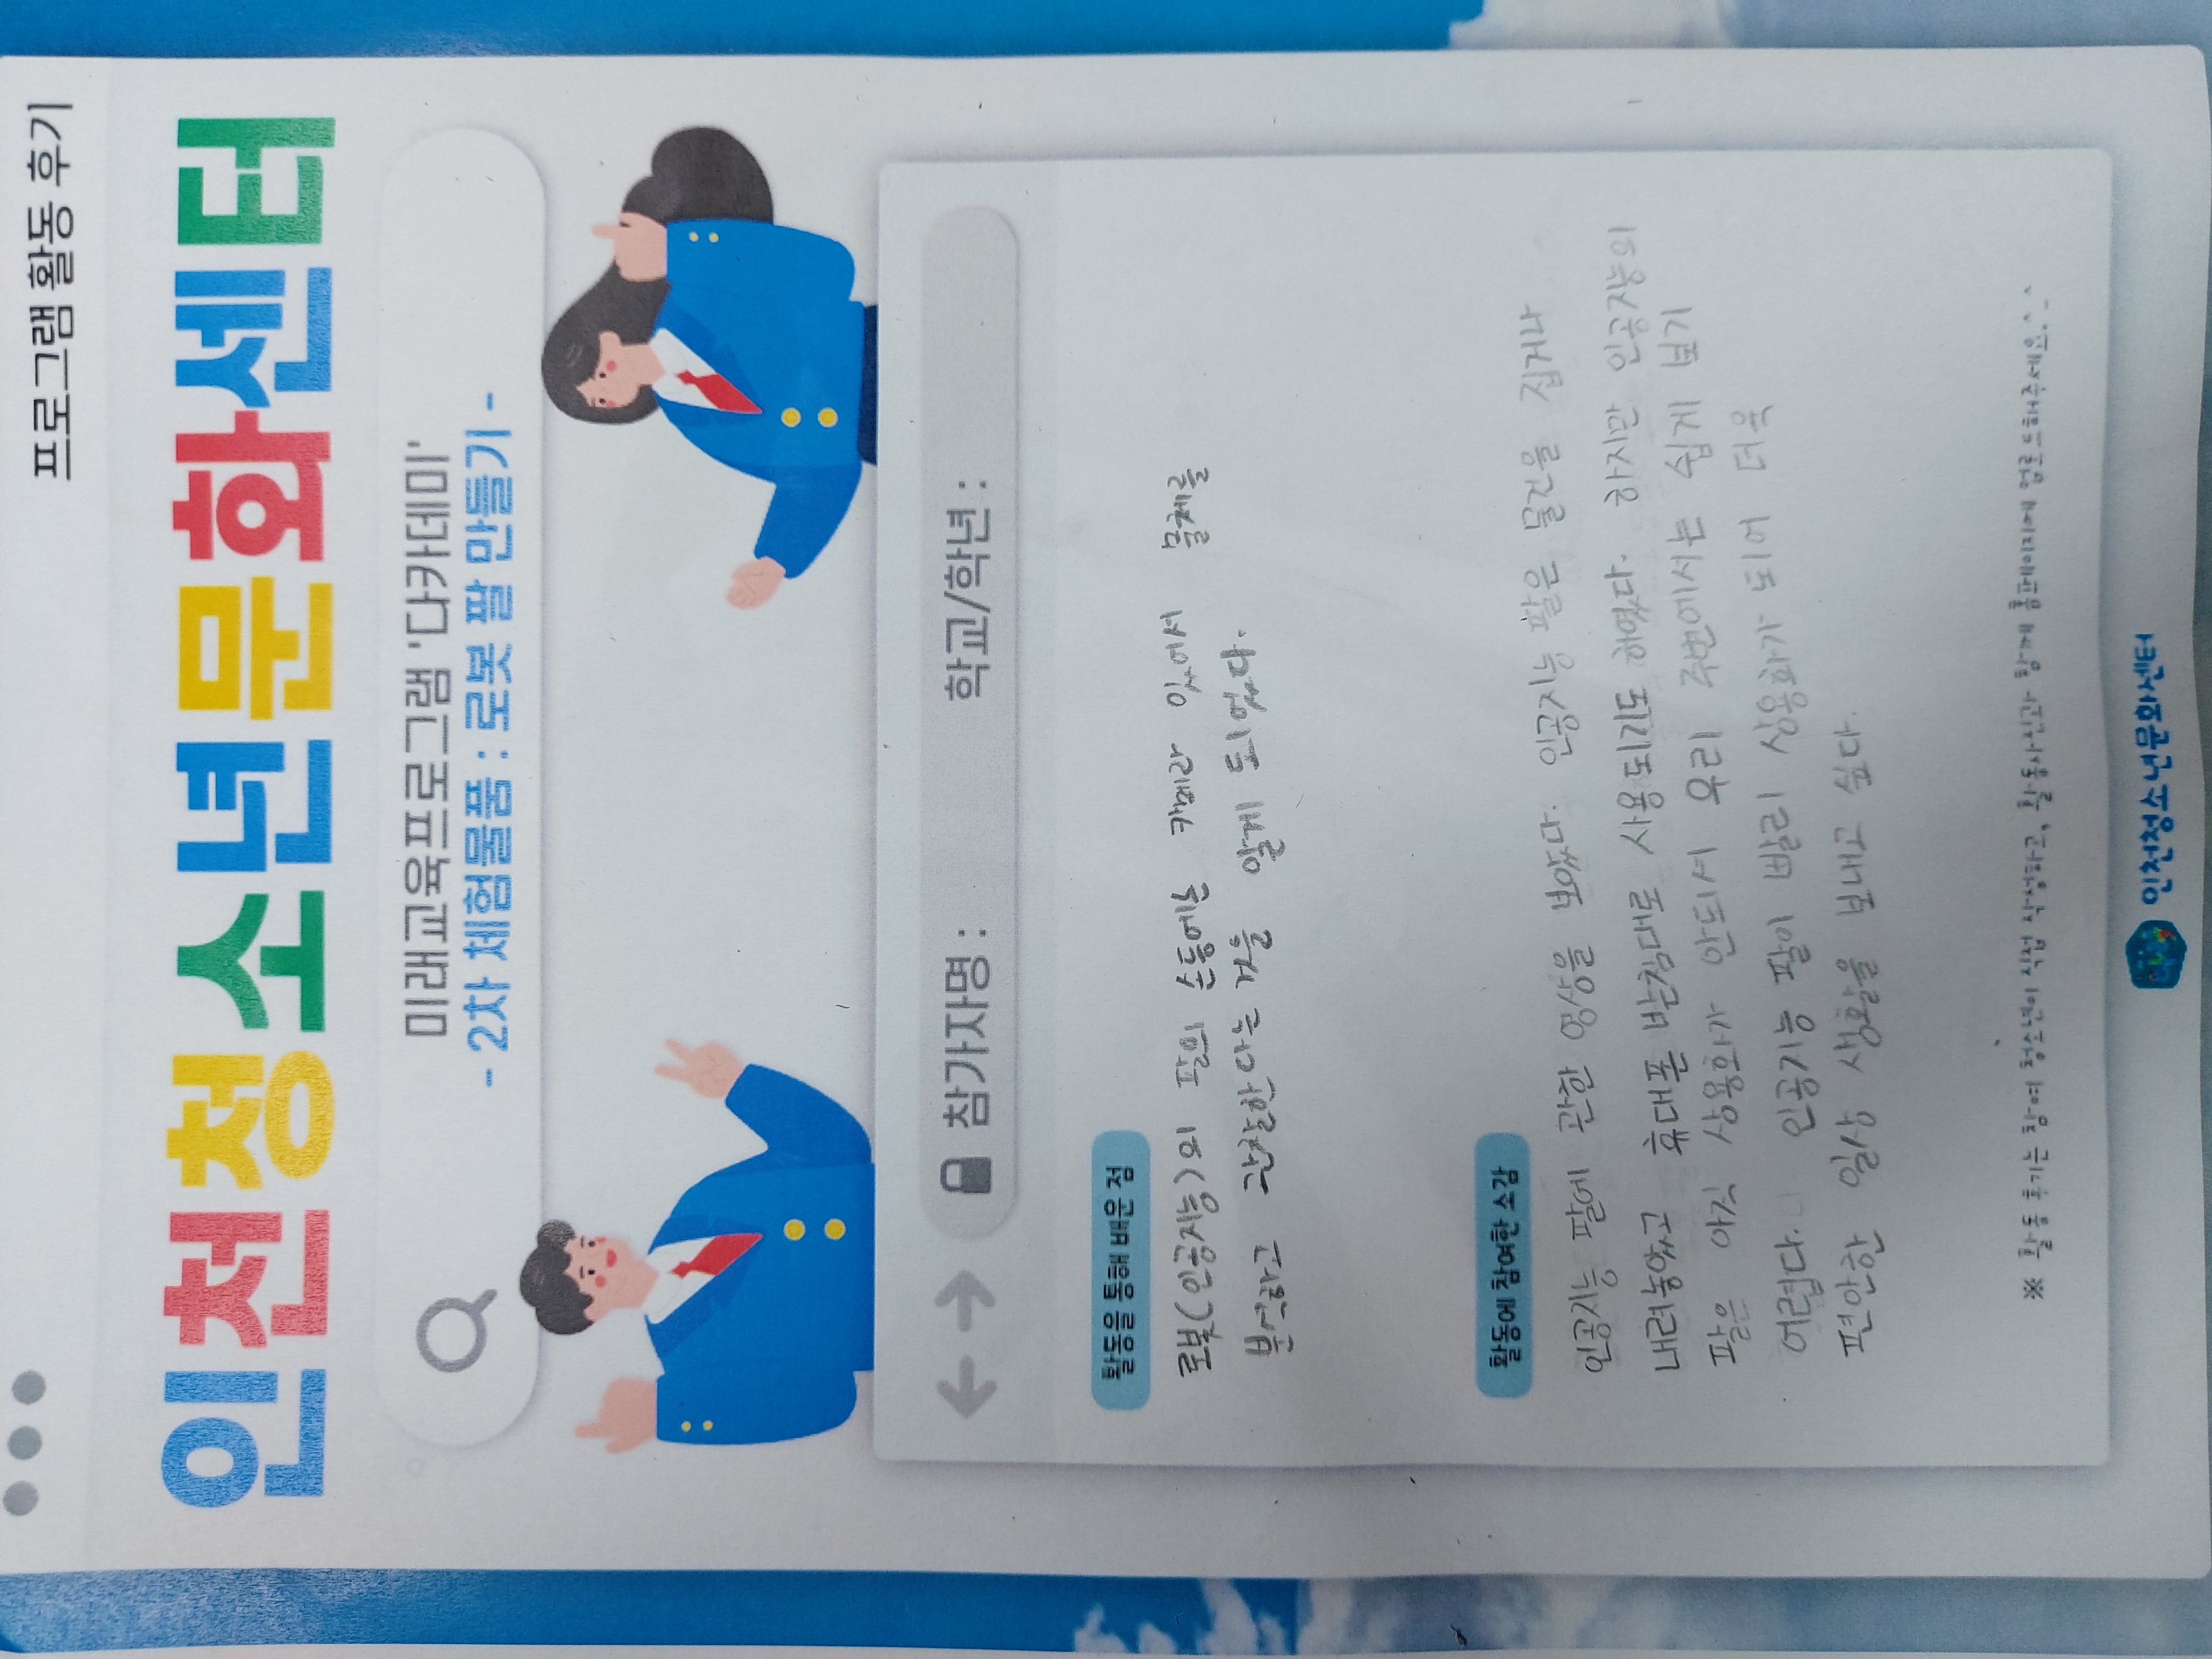 프로그램 활동 후기
인천청소년문화센터
미래교육프로그램 '다카데미'
- 2차 체험물품 : 로봇 팔 만들기 -
참가자명 : 학교/학년 :
활동을 통해 배운 점
로봇(인공지능)의 팔의 손등에는 카메라 있어서 물체를
분석하고 관찰한다는 거를 알게 되었다.
활동에 참여한 소감
인공지능 팔에 관한 영상을 봤었다. 인공지능 팔은 물건을 집거나
내려놓았고 휴대폰 받침대로 사용되기도 하였다. 하지만 인공지능의
팔은 아직 상용화가 안되서 우리 주변에서는 쉽게 보기
어렵다. 인공지능 팔이 빨리 상용화가 되어 더욱
편안한 일상 생활을 보내고 싶다.
※ 활동 후기는 참여 청소년이 직접 작성하고, 활동사진
인천청소년문화센터